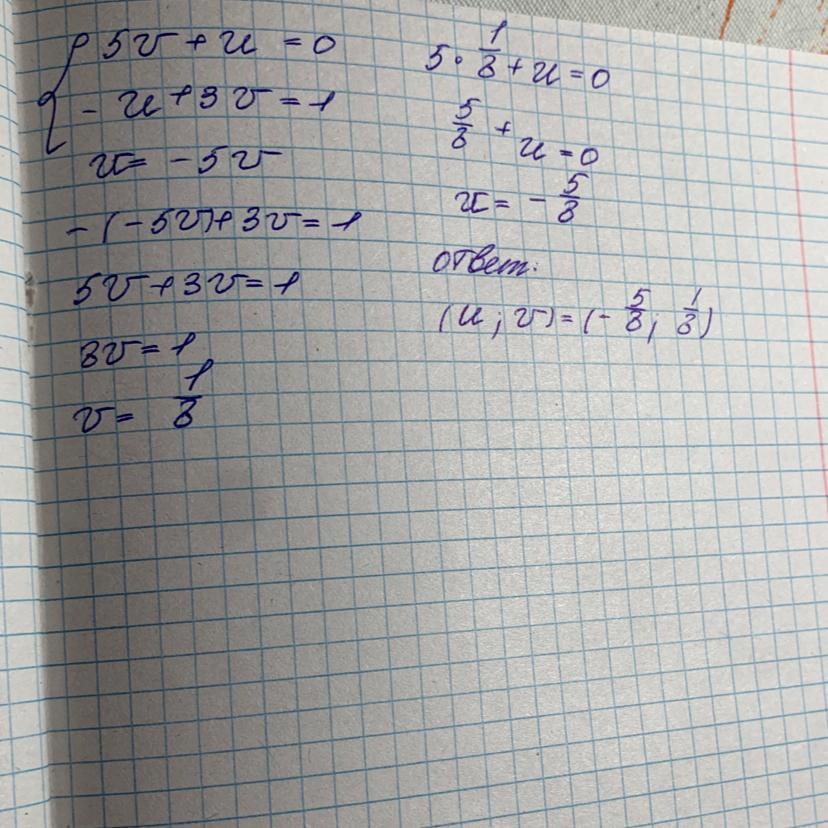 5v + u = 0
- u + 3v = 1
u = - 5v
- (- 5v) + 3v = 1
5v + 3v = 1
8v = 1
v = 1/8
5 · 1/8 + u = 0
5/8 + u = 0
u = - 5/8
ответ:
(u ; v) = (- 5/8 ; 1/8)